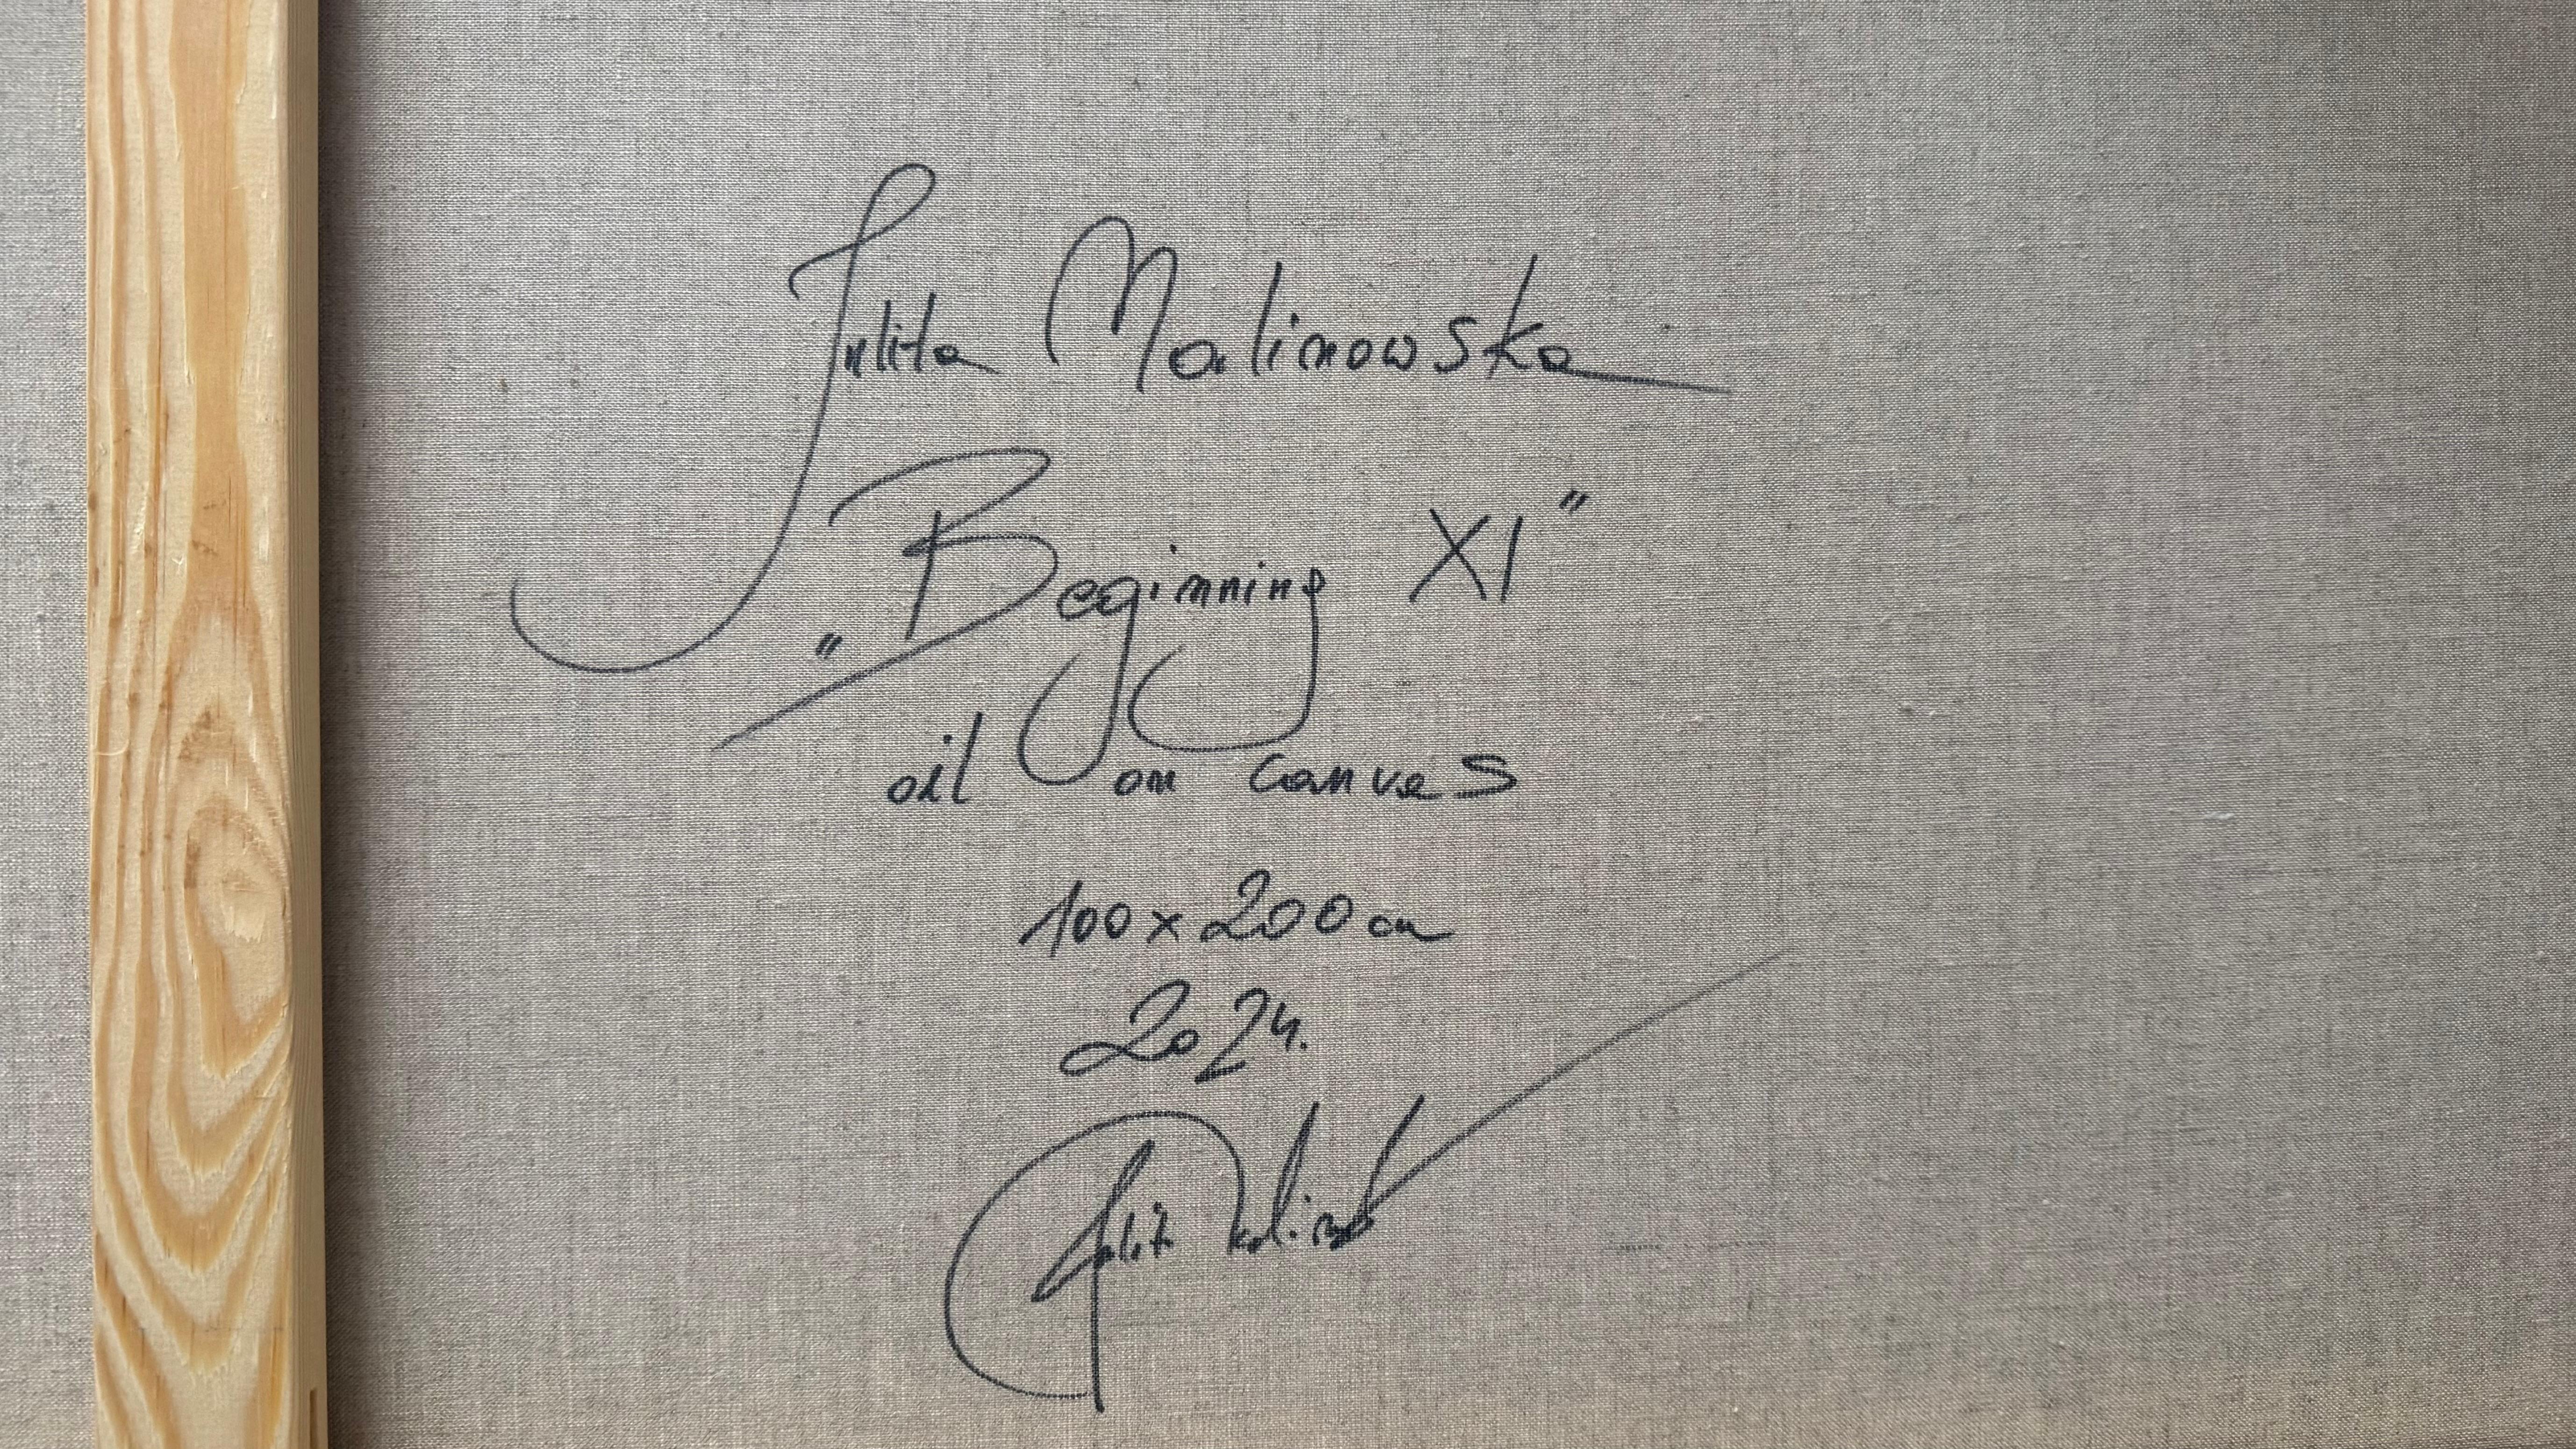 Julita Malinowska
„Beginning XI"
oil on canvas
100 x 200 cm
2024.